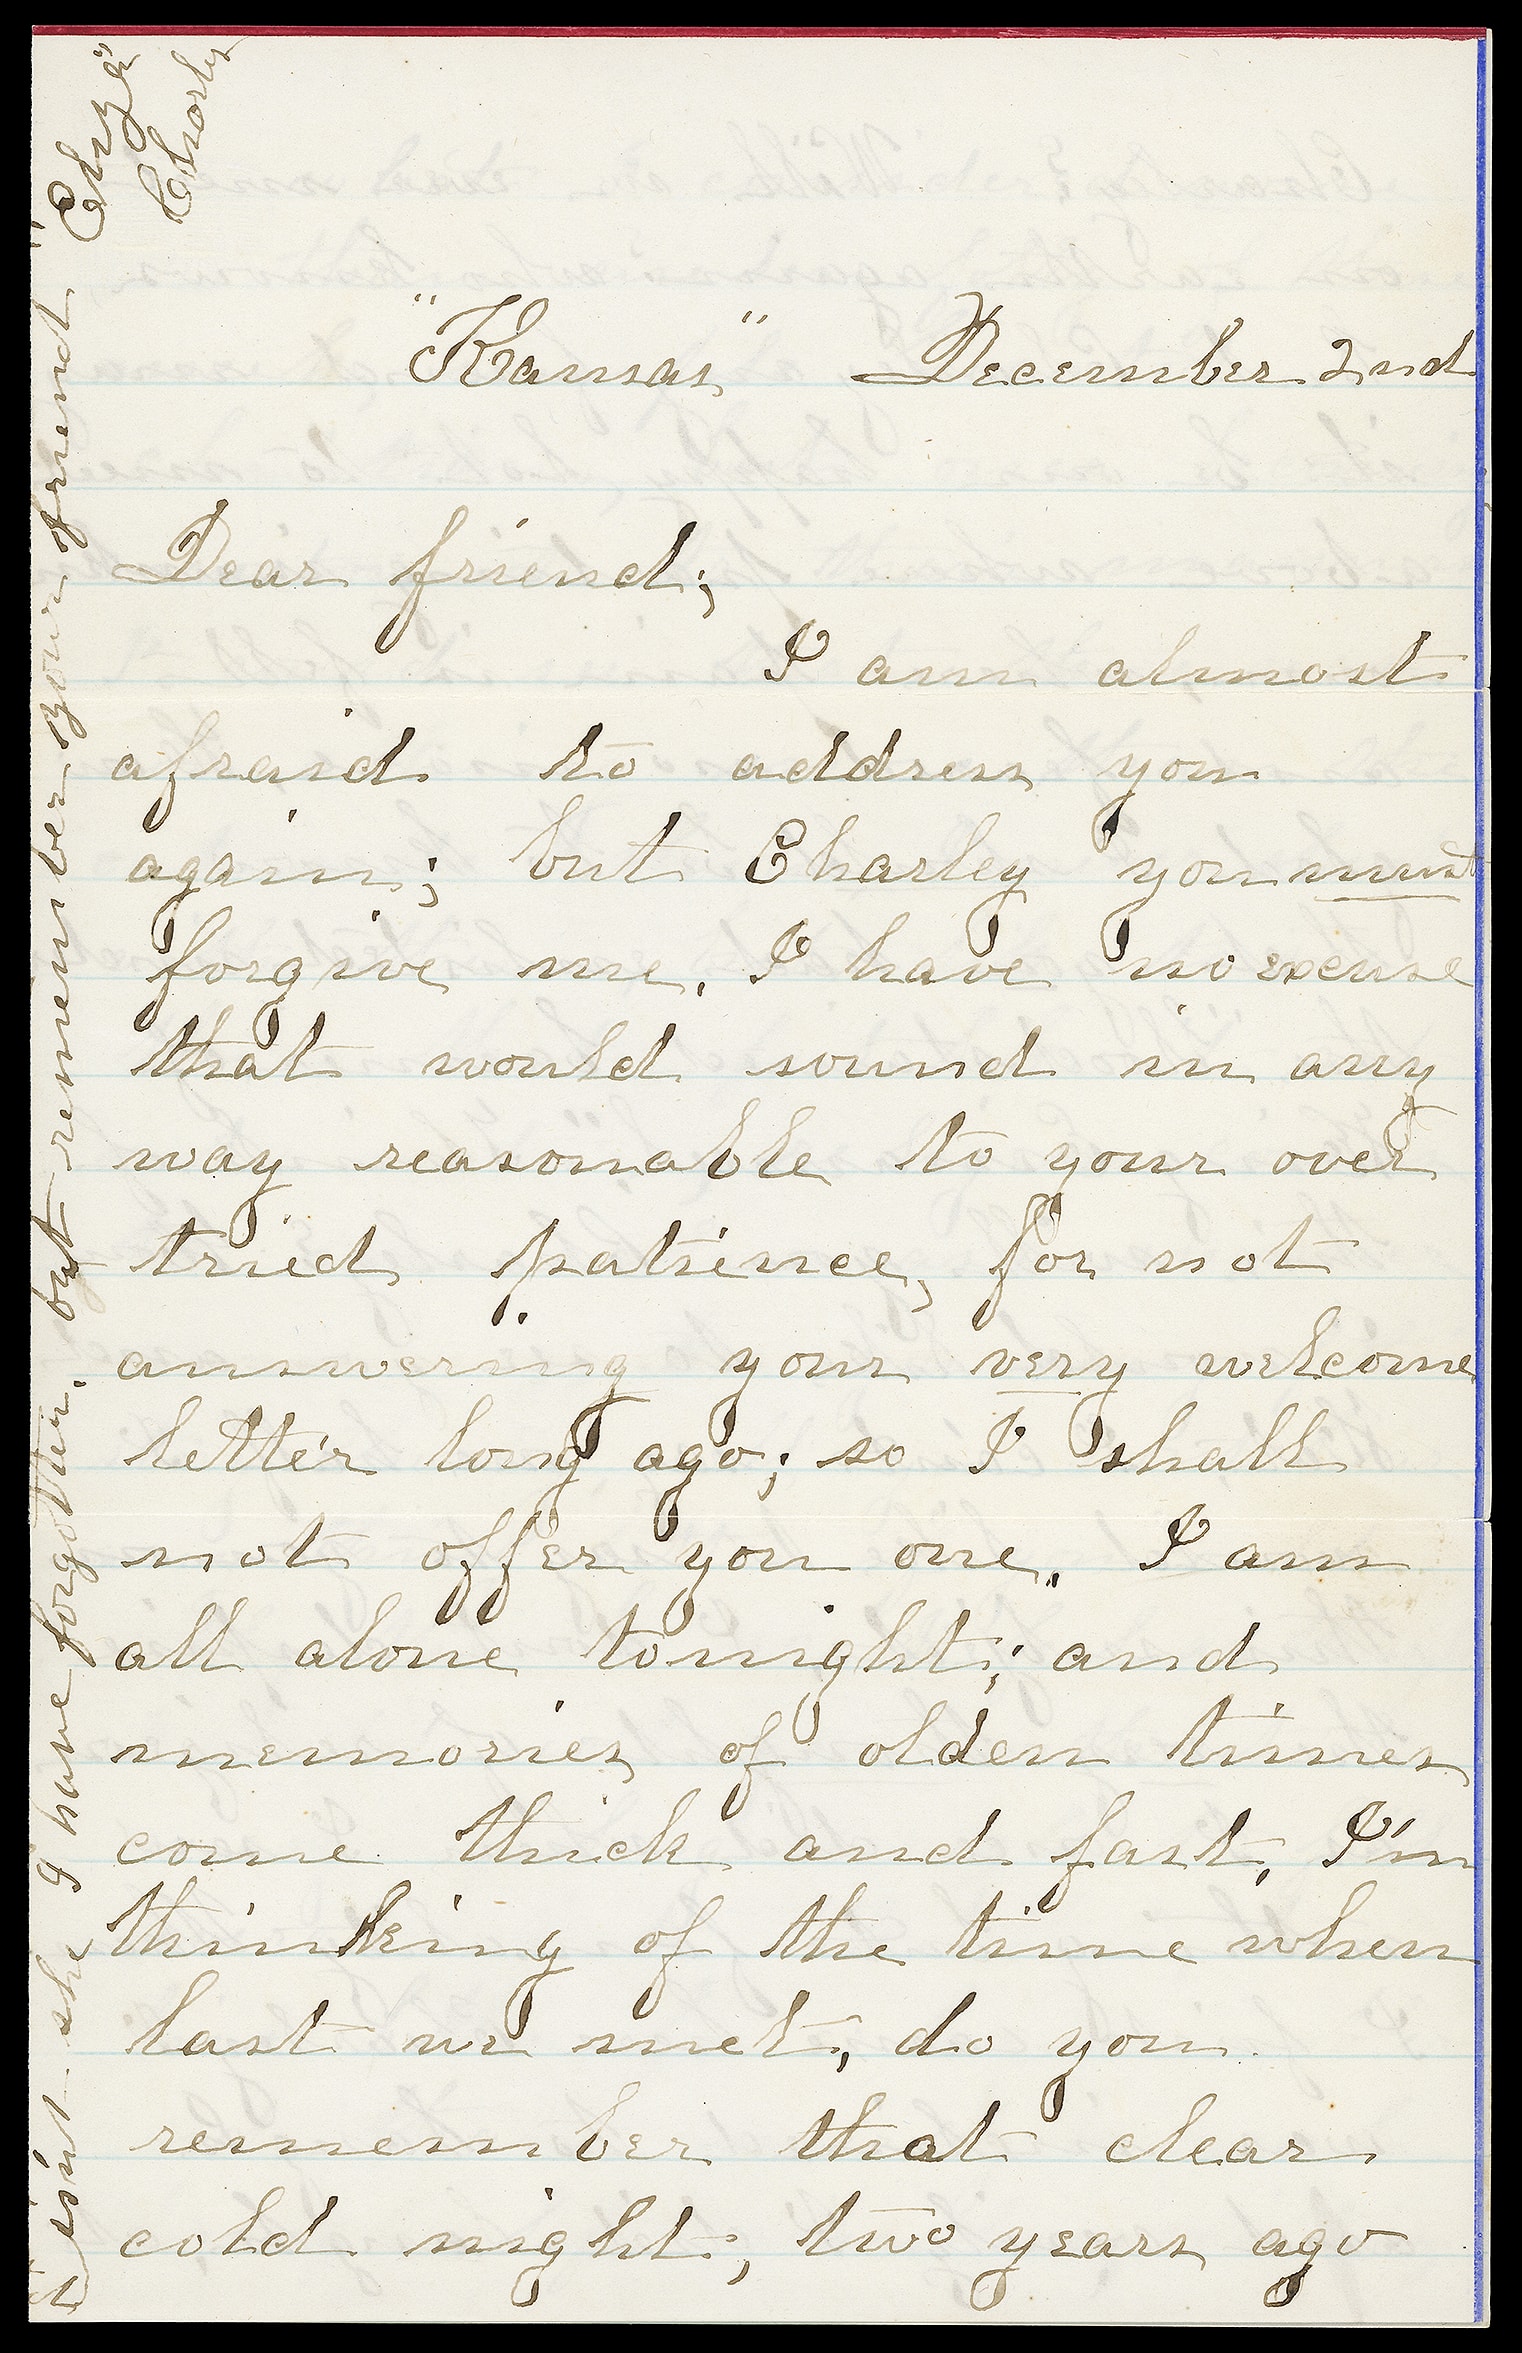 "Kansas" December 2nd
Dear friend;
I am almost
afraid to address you
again; but Charley you must
forgive me. I have no excuse
that would sound in any
way reasonable to your over
tried patience, for not
answering your very welcome
letter long ago; so I shall
not offer you one. I am
all alone tonight; and
memories of olden times
come thick and fast, I'm
thinking of the time when
last we met, do you
remember that clear
cold night, two years ago
isn't she I have forgotten. but remember your friend
Charley